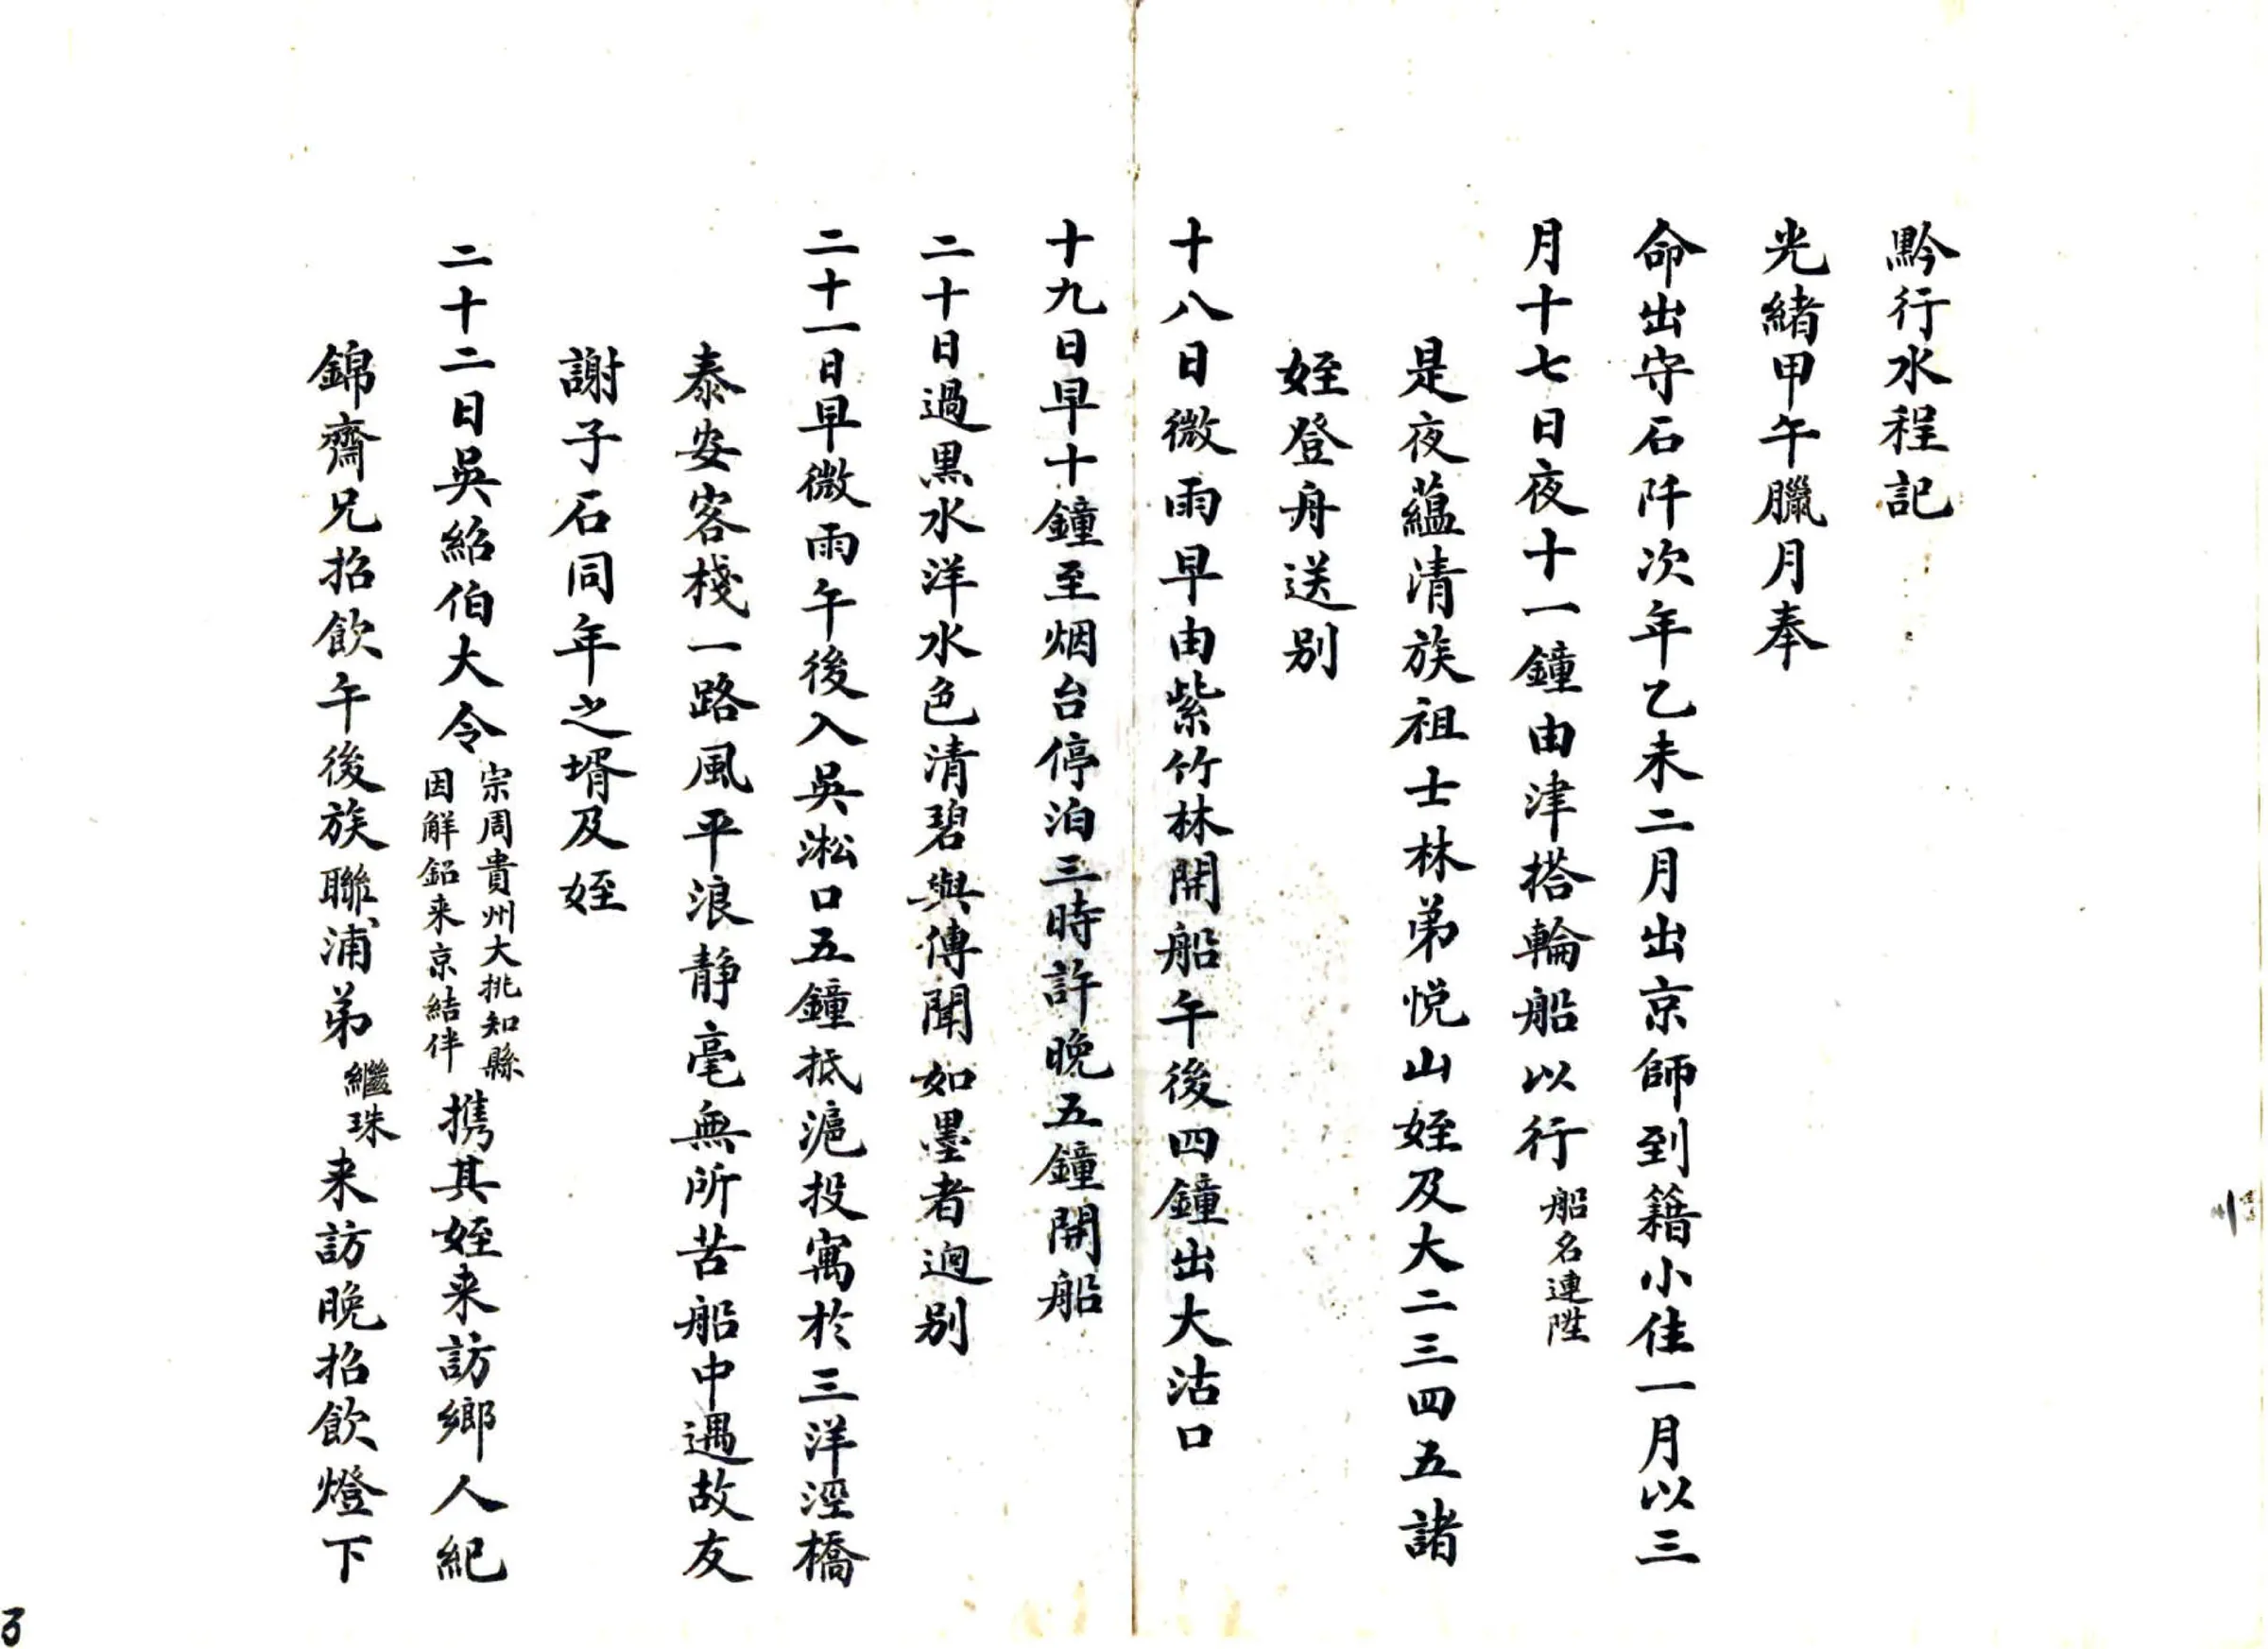 黔行水程記
光緒甲午臘月奉
命出守石阡次年乙未二月出京師到籍小住一月以三
月十七日夜十一鐘由津搭輪船以行船名連陞
是夜蘊清族祖士林弟悅山姪及大二三四五諸
姪登舟送别
十八日微雨早由紫竹林開船午後四鐘出大沽口
十九日早十鐘至烟台停泊三時許晚五鐘開船
二十日過黑水洋水色清碧與傳聞如墨者迥别
二十一日早微雨午後入吳淞口五鐘抵滬投寓於三洋涇橋
泰安客棧一路風平浪靜毫無所苦船中遇故友
謝子石同年之壻及姪
二十二日吳紹伯大令宗周貴州大挑知縣因解鉛来京結伴携其姪来訪鄉人紀
錦齋兄招飲午後族聯浦弟繼珠来訪晚招飲燈下